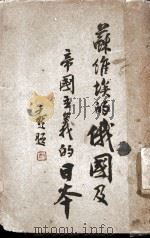 蘇維埃的俄國及
帝國主義的日本